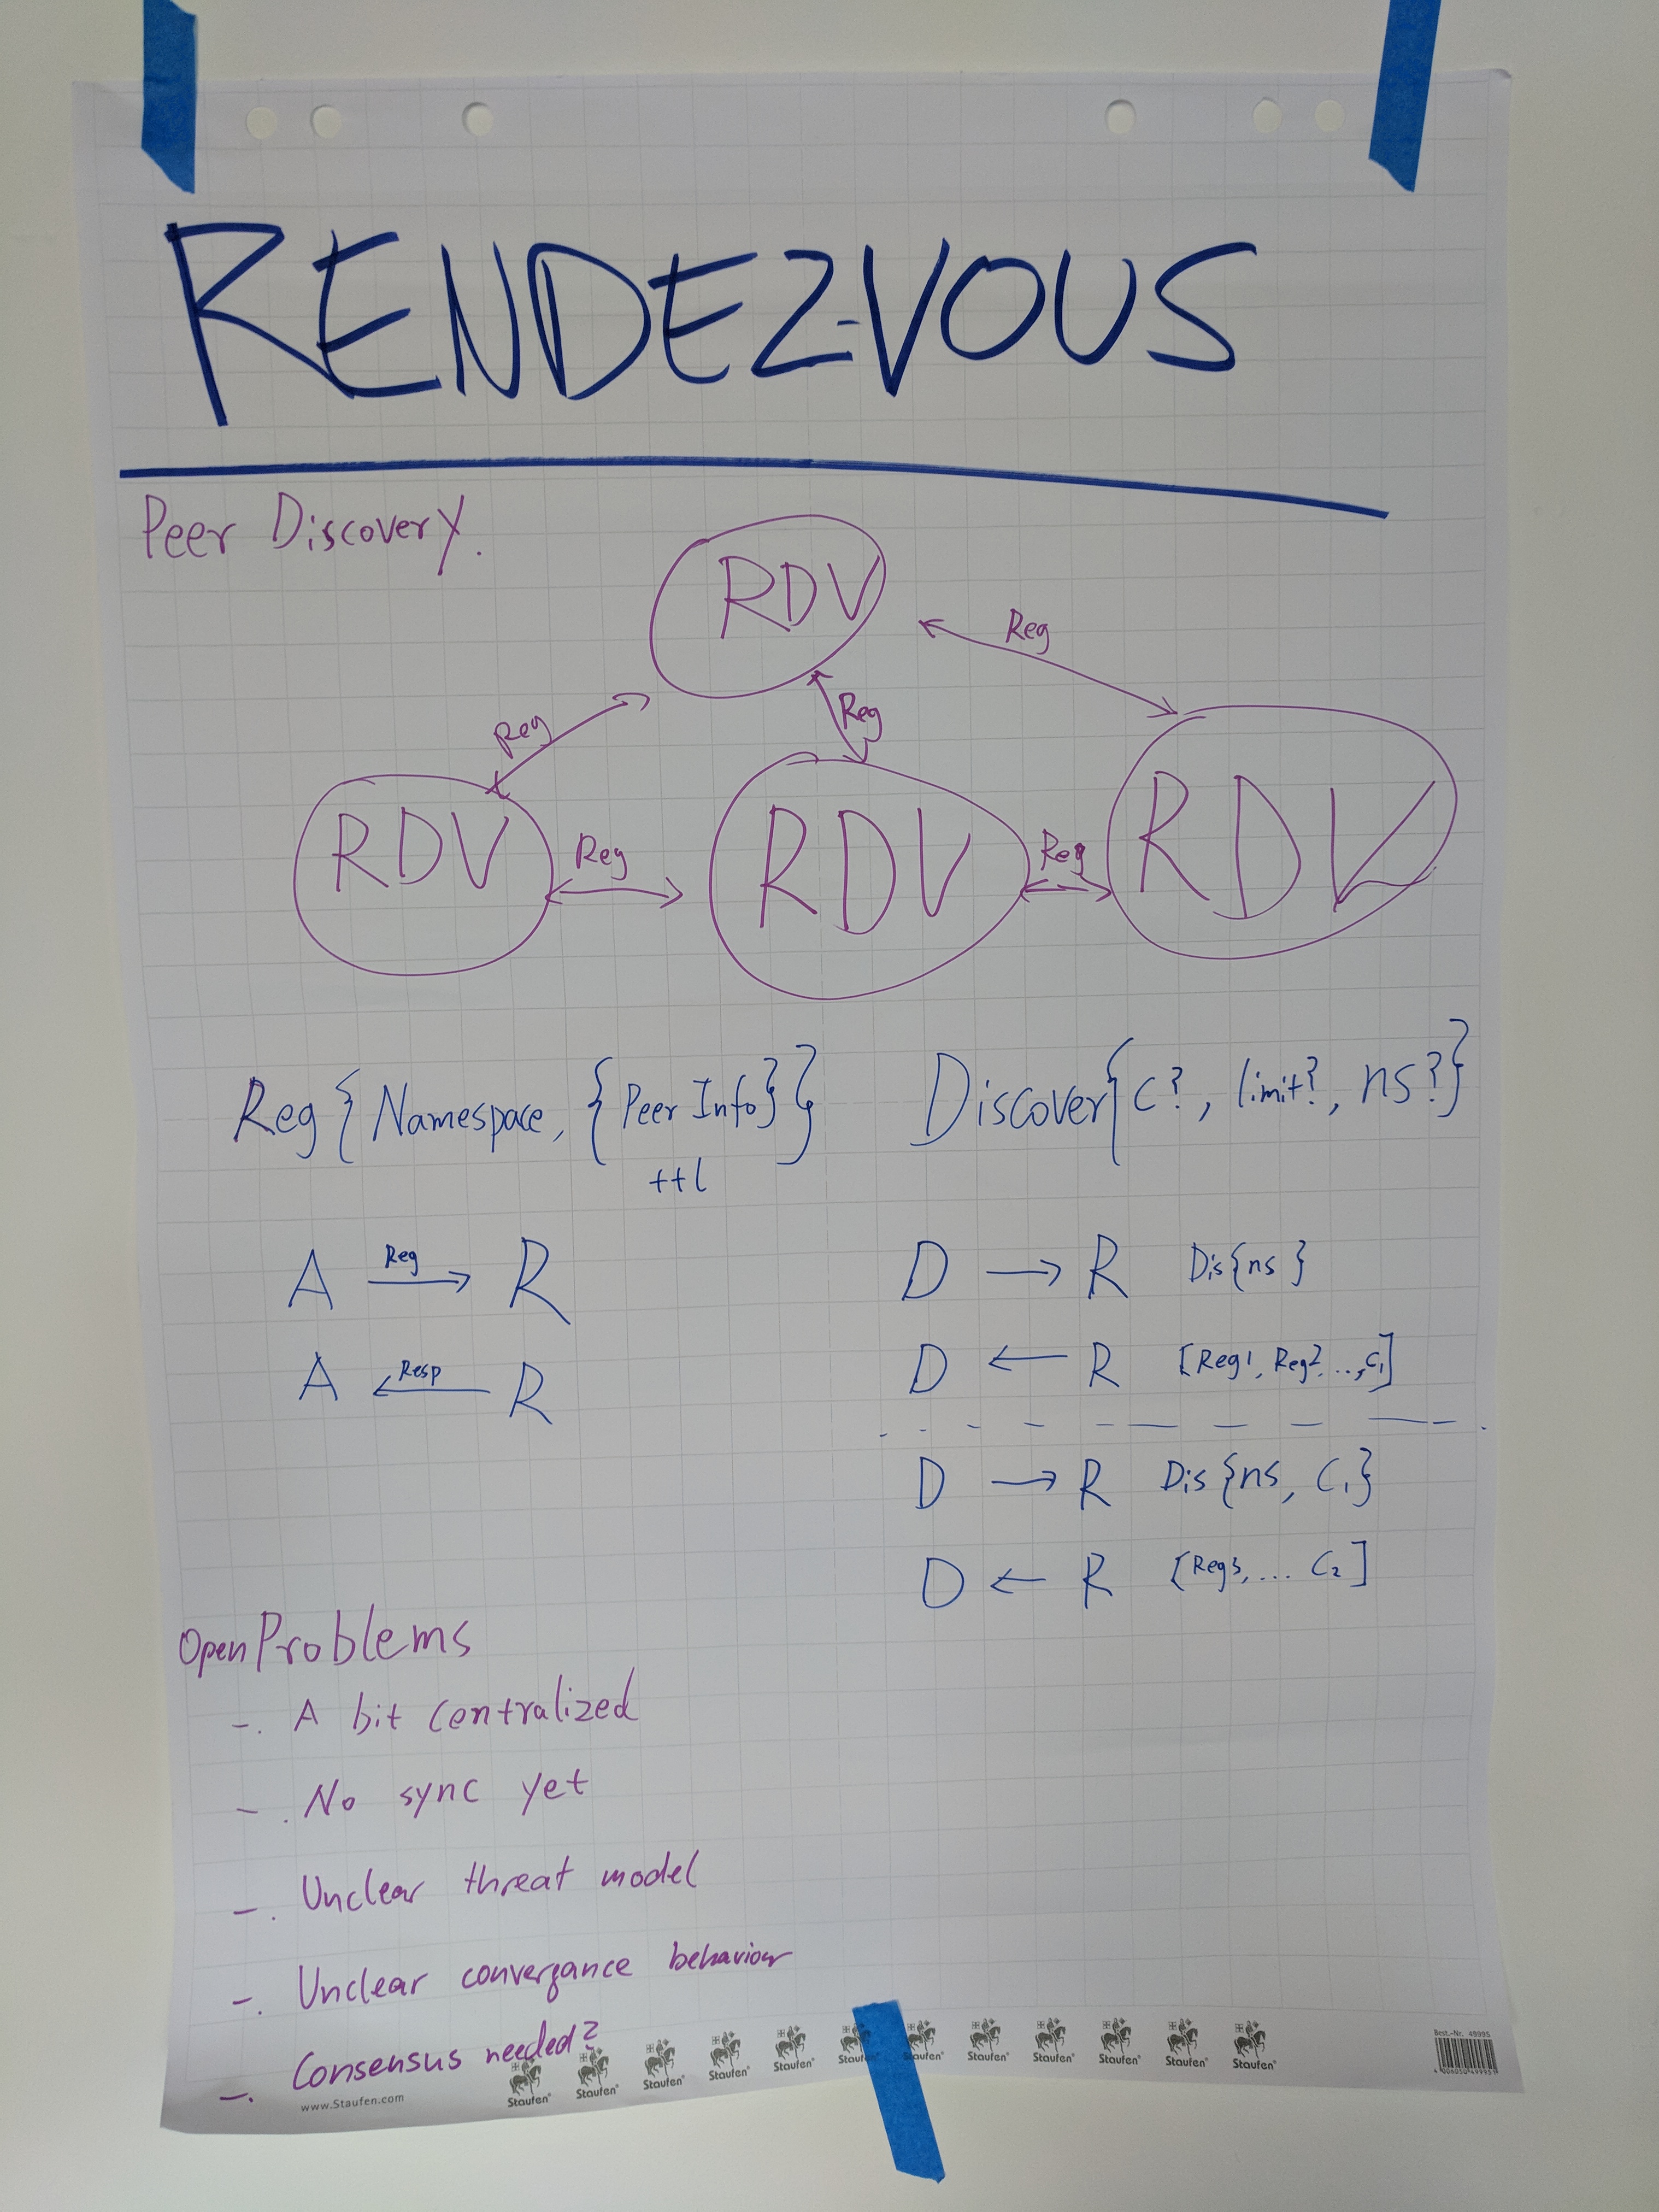 RENDEZ-VOUS
Peer Discovery.
RDV
Reg
Reg
Reg
RDV
Reg
RDV
Reg
RDV
Reg{Namespace, {Peer Info}}
ttl
Discover{C?, limit?, ns?}
A Reg → R
A ← Resp R
D → R Dis{ns}
D ← R [Reg1, Reg2, ..., C1]
D → R Dis{ns, C1}
D ← R [Reg3, ... C2]
Open Problems
-. A bit centralized
-. No sync yet
-. Unclear threat model
-. Unclear convergance behaviour
-. Consensus needed?
www.Staufen.com
Staufen® Staufen® Staufen® Staufen® Staufen® Staufen® Staufen® Staufen® Staufen® Staufen® Staufen® Staufen®
Best.-Nr. 49995
4 006050 499951